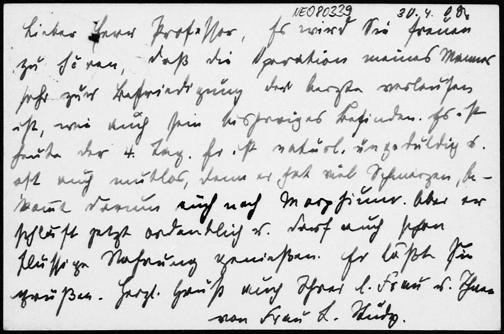 NE080339 30.4.
Lieber Herr Professor, Es wird Sie freuen
zu hören, daß die Operation meines Mannes
sehr zur Befriedigung der Aerzte verlaufen
ist, wie auch sein bisheriges Befinden. Es ist
heute der 4. Tag. Er ist natürl. ungeduldig u.
oft auch mutlos, denn er hat viel Schmerzen, be-
kommt darum auch noch Morphium. Aber er
schläft jetzt ordentlich u. darf auch schon
flüssige Nahrung genießen. Er läßt Sie
grüßen. Herzl. Gruß auch Ihrer l. Frau u. Ihnen
von Frau L.